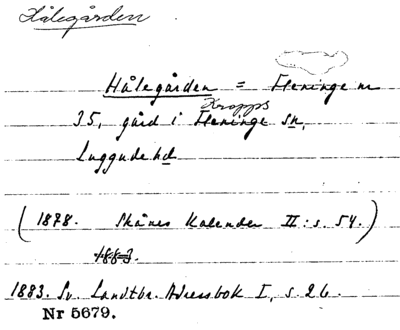 Hålegården
Hålegården = Fleninge nr
Kropps
35, gård i Fleninge sn,
Luggude hd
(1878. Skånes Kalender II: s. 54.)
1883.
1883. Sv. Landtbr. Adressbok I, s. 26.
Nr 5679.